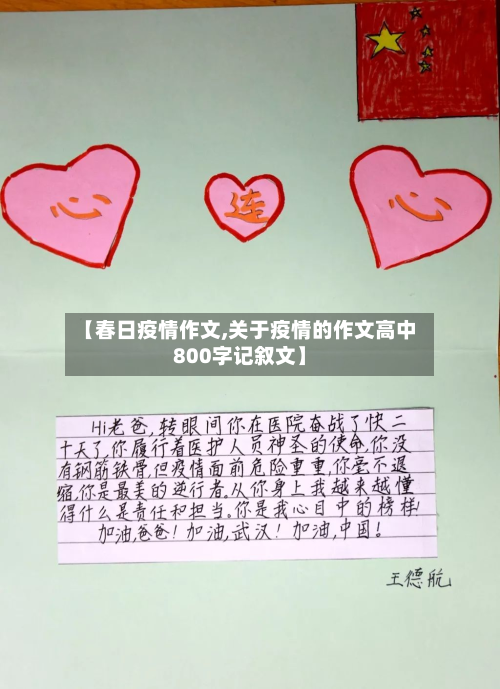 心 连 心
【春日疫情作文,关于疫情的作文高中
800字记叙文】
Hi老爸,转眼间你在医院奋战了快二
十天了,你履行着医护人员神圣的使命,你没
有钢筋铁骨但疫情面前危险重重,你毫不退
缩,你是最美的逆行者,从你身上我越来越懂
得什么是责任和担当,你是我心目中的榜样!
加油,爸爸!加油,武汉!加油,中国!
王德航